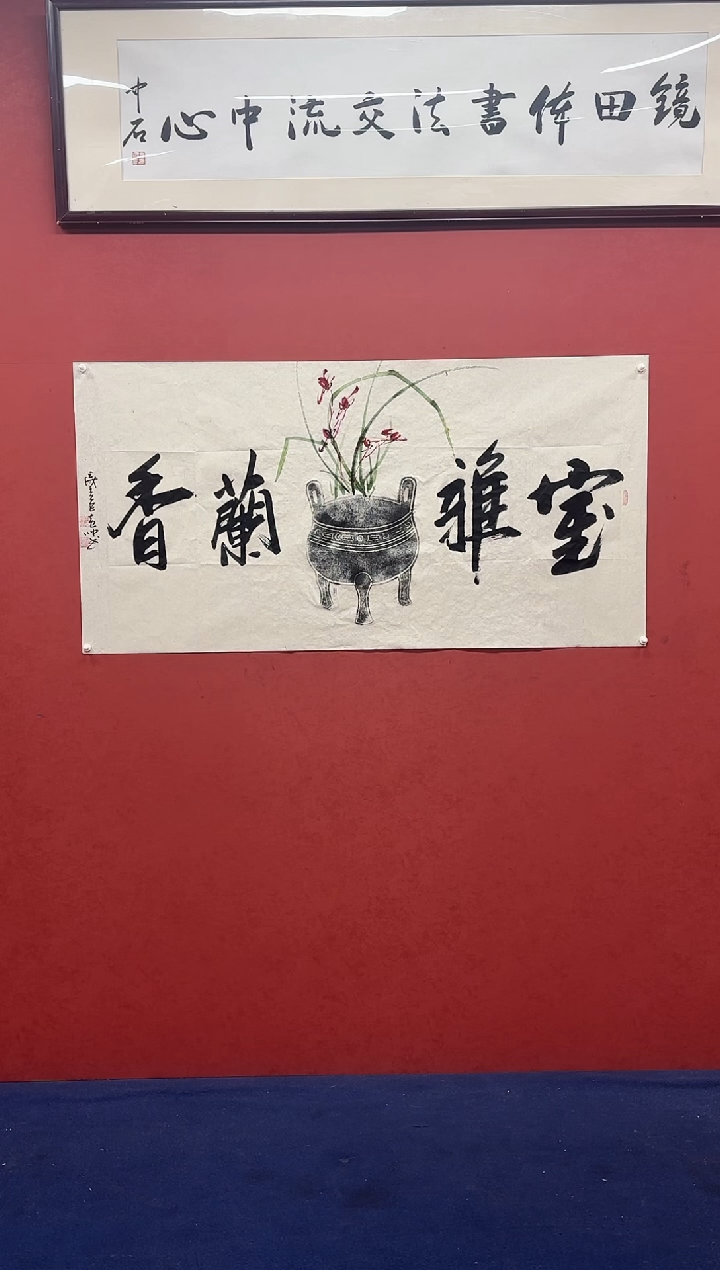 鏡田体書法交流中心
中石
室雅蘭香